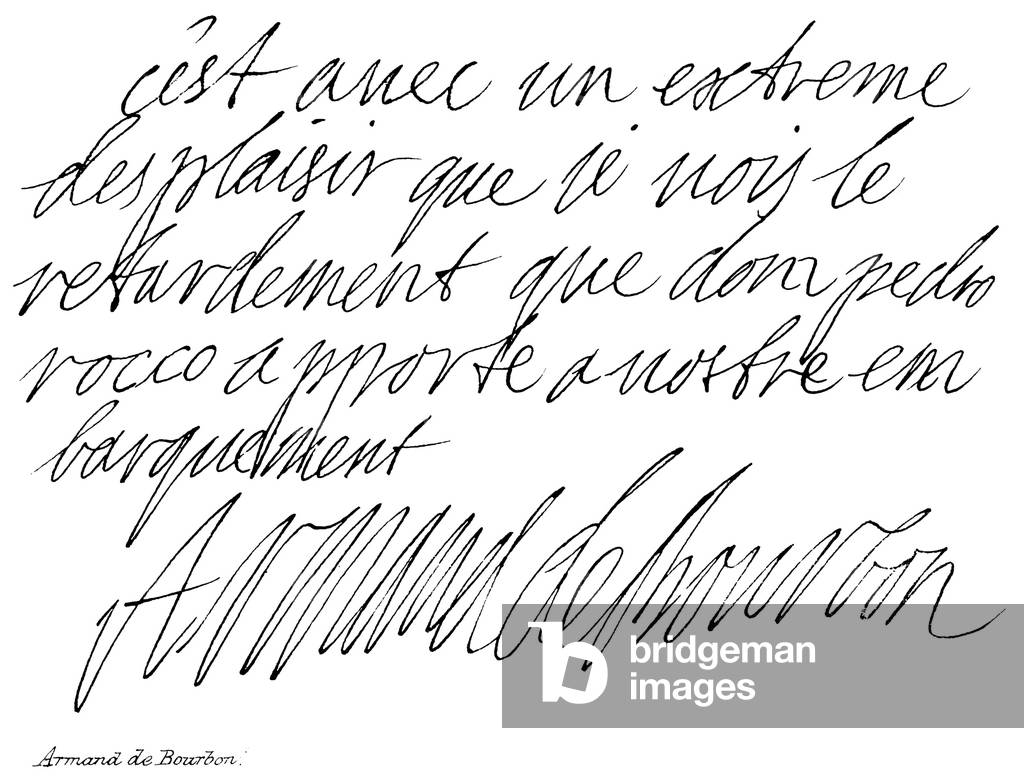 c'est auec un extreme
desplaisir que ie uoij le
retardement que dom pedro
rocco apporte a nostre em
barquement
Armand de bourbon
b
bridgeman
images
Armand de Bourbon.